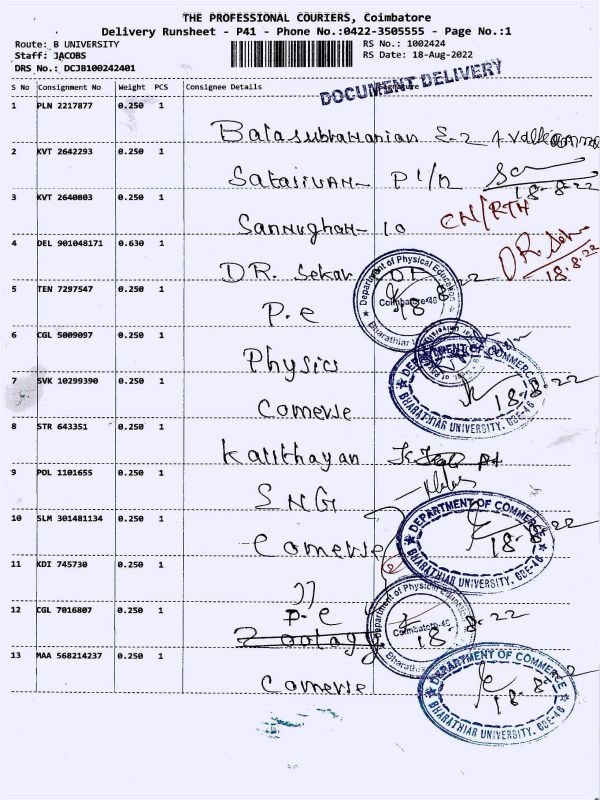 THE PROFESSIONAL COURIERS, Coimbatore
Delivery Runsheet - P41 - Phone No.:0422-3505555 - Page No.:1
Route: B UNIVERSITY
RS No.: 1002424
Staff: JACOBS
RS Date: 18-Aug-2022
DRS No.: DCJB100242401
DOCUMENT DELIVERY
S No Consignment No Weight PCS Consignee Details
1 PLN 2217877 0.250 1
Balasubramanian
2 KVT 2642293 0.250 1
P1/n
18-8-22
3 KVT 2640803 0.250 1
10
CN/RTH
4 DEL 901048171 0.630 1
DR. Sekar
DR. Sekar
18.8.22
5 TEN 7297547 0.250 1
P.e
Department of Physical Education
Coimbatore-46
6 CGL 5009097 0.250 1
Physics
7 SVK 10299390 0.250 1
DEPARTMENT OF COMMERCE
BHARATHIAR UNIVERSITY, CBE-46
18-8-22
Comerse
8 STR 643351 0.250 1
9 POL 1101655 0.250 1
SNG
10 SLM 301481134 0.250 1
Comerse
DEPARTMENT OF COMMERCE
BHARATHIAR UNIVERSITY, CBE-46
18-8-22
11 KDI 745730 0.250 1
12 CGL 7016807 0.250 1
P.e
Zoology
Coimbatore-46
18-8-22
13 MAA 568214237 0.250 1
Comerse
DEPARTMENT OF COMMERCE
BHARATHIAR UNIVERSITY, CBE-46
18-8-22